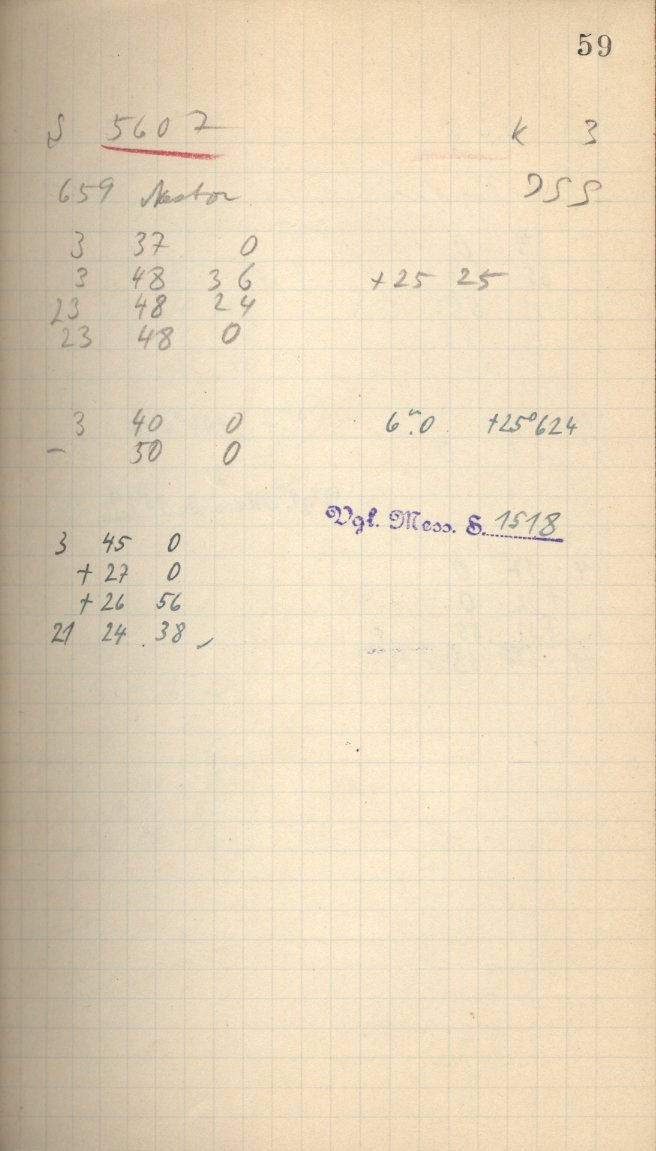 59
S 5607 K 3
659 Nestor DSS
3 37 0
3 48 36 +25 25
23 48 24
23 48 0
3 40 0 6ᵐ.0 +25°624
– 50 0
Vgl. Mess. S. 1518
3 45 0
+27 0
+26 56
21 24 38